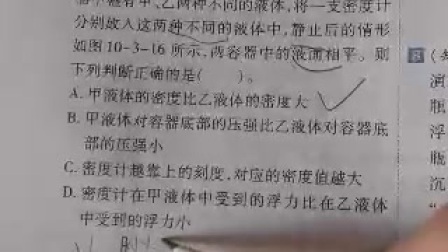 有甲、乙两种不同的液体,将一支密度计
分别放入这两种不同的液体中,静止后的情形
如图10-3-16所示,两容器中的液面相平。则
下列判断正确的是( )。
A. 甲液体的密度比乙液体的密度大
B. 甲液体对容器底部的压强比乙液体对容器底
部的压强小
C. 密度计越靠上的刻度,对应的密度值越大
D. 密度计在甲液体中受到的浮力比在乙液体
中受到的浮力小
8
演
瓶
浮
瓶
沉